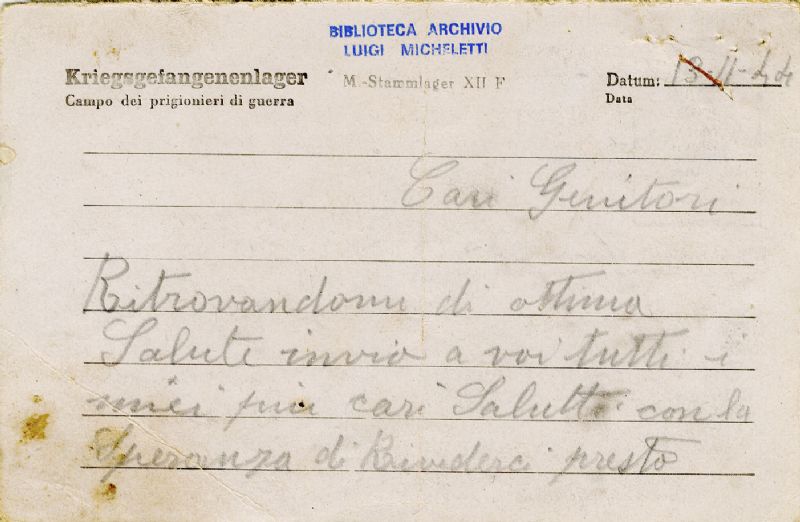 BIBLIOTECA ARCHIVIO
LUIGI MICHELETTI
Kriegsgefangenenlager
M.-Stammlager XII F
Datum: 13-11-44
Campo dei prigionieri di guerra
Data
Cari Genitori
Ritrovandomi di ottima
Salute invio a voi tutti i
miei più cari Salutti con la
Speranza di Rivederci presto